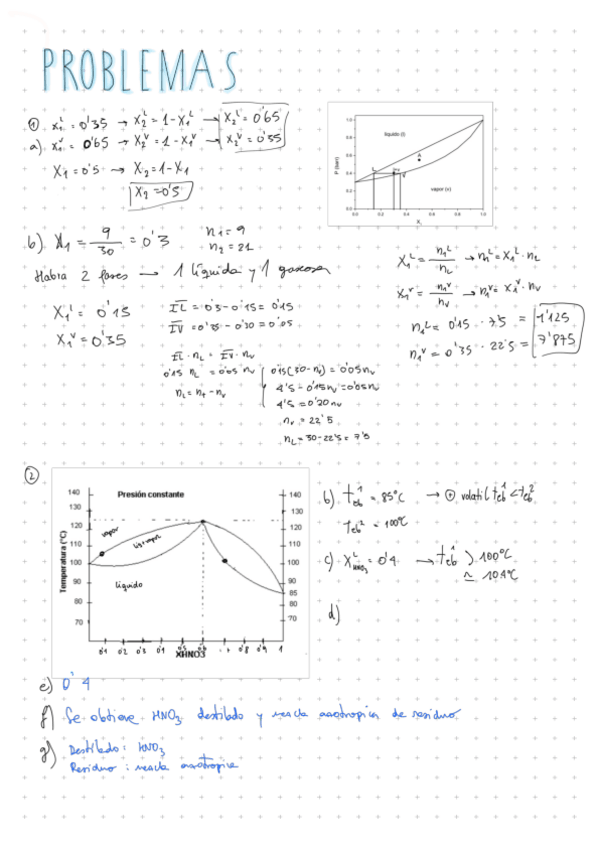 PROBLEMAS
① x₁ᴸ = 0'35 → x₂ᴸ = 1 - x₁ᴸ → x₂ᴸ = 0'65
a) x₁ⱽ = 0'65 → x₂ⱽ = 1 - x₁ⱽ → x₂ⱽ = 0'35
x₁ = 0'5 → x₂ = 1 - x₁
x₂ = 0'5
P (bar)
1.0
0.8
0.6
0.4
0.2
0.0
líquido (l)
A
L
V
vapor (v)
0.0 0.2 0.4 0.6 0.8 1.0
X₁
b) x₁ = 9/30 = 0'3
n₁ = 9
n₂ = 21
Habría 2 fases → 1 líquida y 1 gaseosa
x₁ᴸ = 0'15
x₁ⱽ = 0'35
IL = 0'3 - 0'15 = 0'15
IV = 0'35 - 0'30 = 0'05
IL · nL = IV · nV
0'15 nL = 0'05 nV
nL = nt - nV
0'15(30 - nV) = 0'05 nV
4'5 - 0'15 nV = 0'05 nV
4'5 = 0'20 nV
nV = 22'5
nL = 30 - 22'5 = 7'5
x₁ᴸ = n₁ᴸ/nL → n₁ᴸ = x₁ᴸ · nL
x₁ⱽ = n₁ⱽ/nV → n₁ⱽ = x₁ⱽ · nV
n₁ᴸ = 0'15 · 7'5 = 1'125
n₁ⱽ = 0'35 · 22'5 = 7'875
②
Presión constante
Temperatura (°C)
140
130
120
110
100
90
80
70
140
130
120
110
100
90
85
80
70
vapor
liq+vapor
líquido
0'1 0'2 0'3 0'4 0'5 0'6 0'8 0'9 1
XHNO3
b) teb¹ = 85°C → ⊕ volatil teb¹ < teb²
teb² = 100°C
c) xᴸHNO₃ = 0'4 → teb¹ > 100°C
≃ 104°C
d)
e) 0'4
f) Se obtiene HNO₃ destilado y mezcla azeotropica de residuo.
g) Destilado: HNO₃
Residuo: mezcla azeotropica